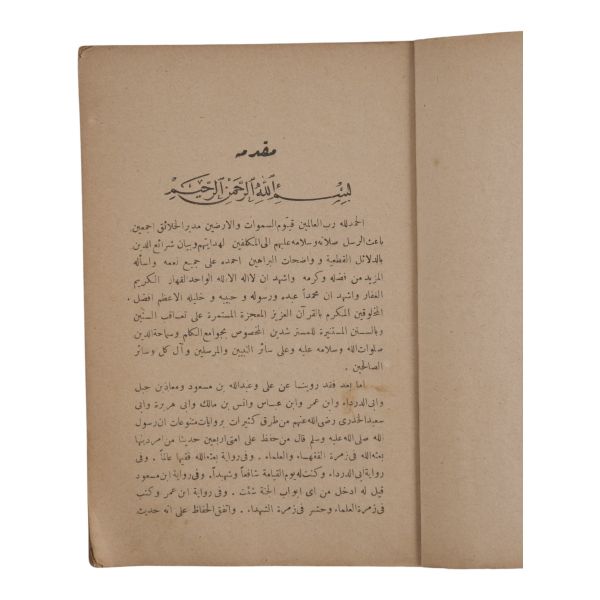 مقدمه
بسم الله الرحمن الرحيم
الحمدلله رب العالمين قيوم السموات والارضين مدبر الخلائق اجمعين
باعث الرسل صلاته وسلامه عليهم الى المكلفين لهدايتهم وبيان شرائع الدين
بالدلائل القطعية و واضحات البراهين احمده على جميع نعمه واسأله
المزيد من فضله وكرمه واشهد ان لااله الاالله الواحد القهار الكريم
الغفار واشهد ان محمداً عبده ورسوله و حبيبه و خليله الاعظم افضل
المخلوقين المكرم بالقرآن العزيز المعجزة المستمرة على تعاقب السنين
وبالسنن المستنيرة للمسترشدين المخصوص بجوامع الكلم وسماحة الدين
صلوات الله وسلامه عليه وعلى سائر النبيين والمرسلين وآل كل وسائر
الصالحين .
اما بعد فقد روينا عن على وعبدالله بن مسعود ومعاذبن جبل
وابى الدرداء وابن عمر وابن عباس وانس بن مالك وابى هريرة وابى
سعيد الخدرى رضى الله عنهم من طرق كثيرات بروايات متنوعات ان رسول
الله صلى الله عليه وسلم قال من حفظ على امتى اربعين حديثا من امر دينها
بعثه الله فى زمرة الفقهاء والعلماء . وفى رواية بعثه الله فقيها عالماً . وفى
رواية ابى الدرداء وكنت له يوم القيامة شافعاً وشهيداً. وفى رواية ابن مسعود
قيل له ادخل من اى ابواب الجنة شئت . وفى رواية ابن عمر وكتب
فى زمرة العلماء وحشر فى زمرة الشهداء . واتفق الحفاظ على انه حديث